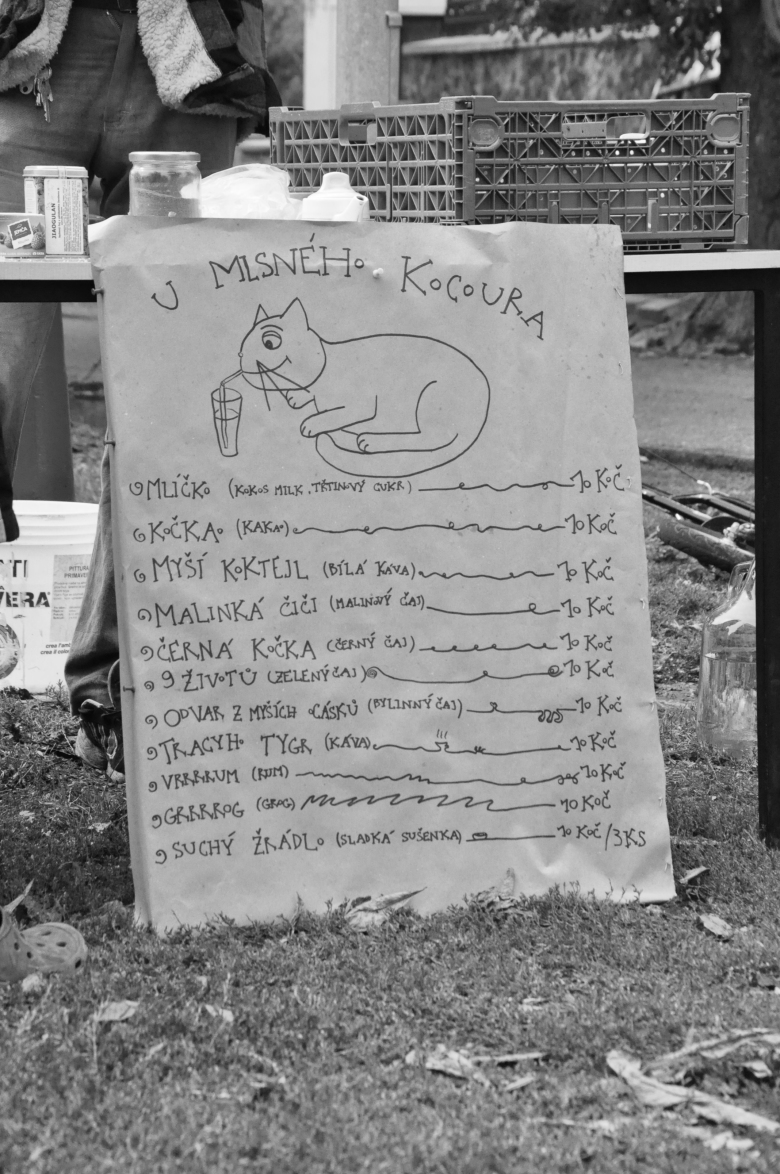 JIAOGULAN
U MLSNÉHO KOCOURA
MLÍČKO (KOKOS MILK, TŘTINOVÝ CUKR) 10 KOČ
KOČKAO (KAKAO) 10 KOČ
MYŠÍ KOKTEJL (BÍLÁ KÁVA) 10 KOČ
MALINKÁ ČIČI (MALINOVÝ ČAJ) 10 KOČ
ČERNÁ KOČKA (ČERNÝ ČAJ) 10 KOČ
9 ŽIVOTŮ (ZELENÝ ČAJ) 10 KOČ
ODVAR Z MYŠÍCH OCÁSKŮ (BYLINNÝ ČAJ) 10 KOČ
TRACYHO TYGR (KÁVA) 10 KOČ
VRRRRUM (RUM) 10 KOČ
GRRRROG (GROG) 10 KOČ
SUCHÝ ŽRÁDLO (SLADKÁ SUŠENKA) 10 KOČ/3KS